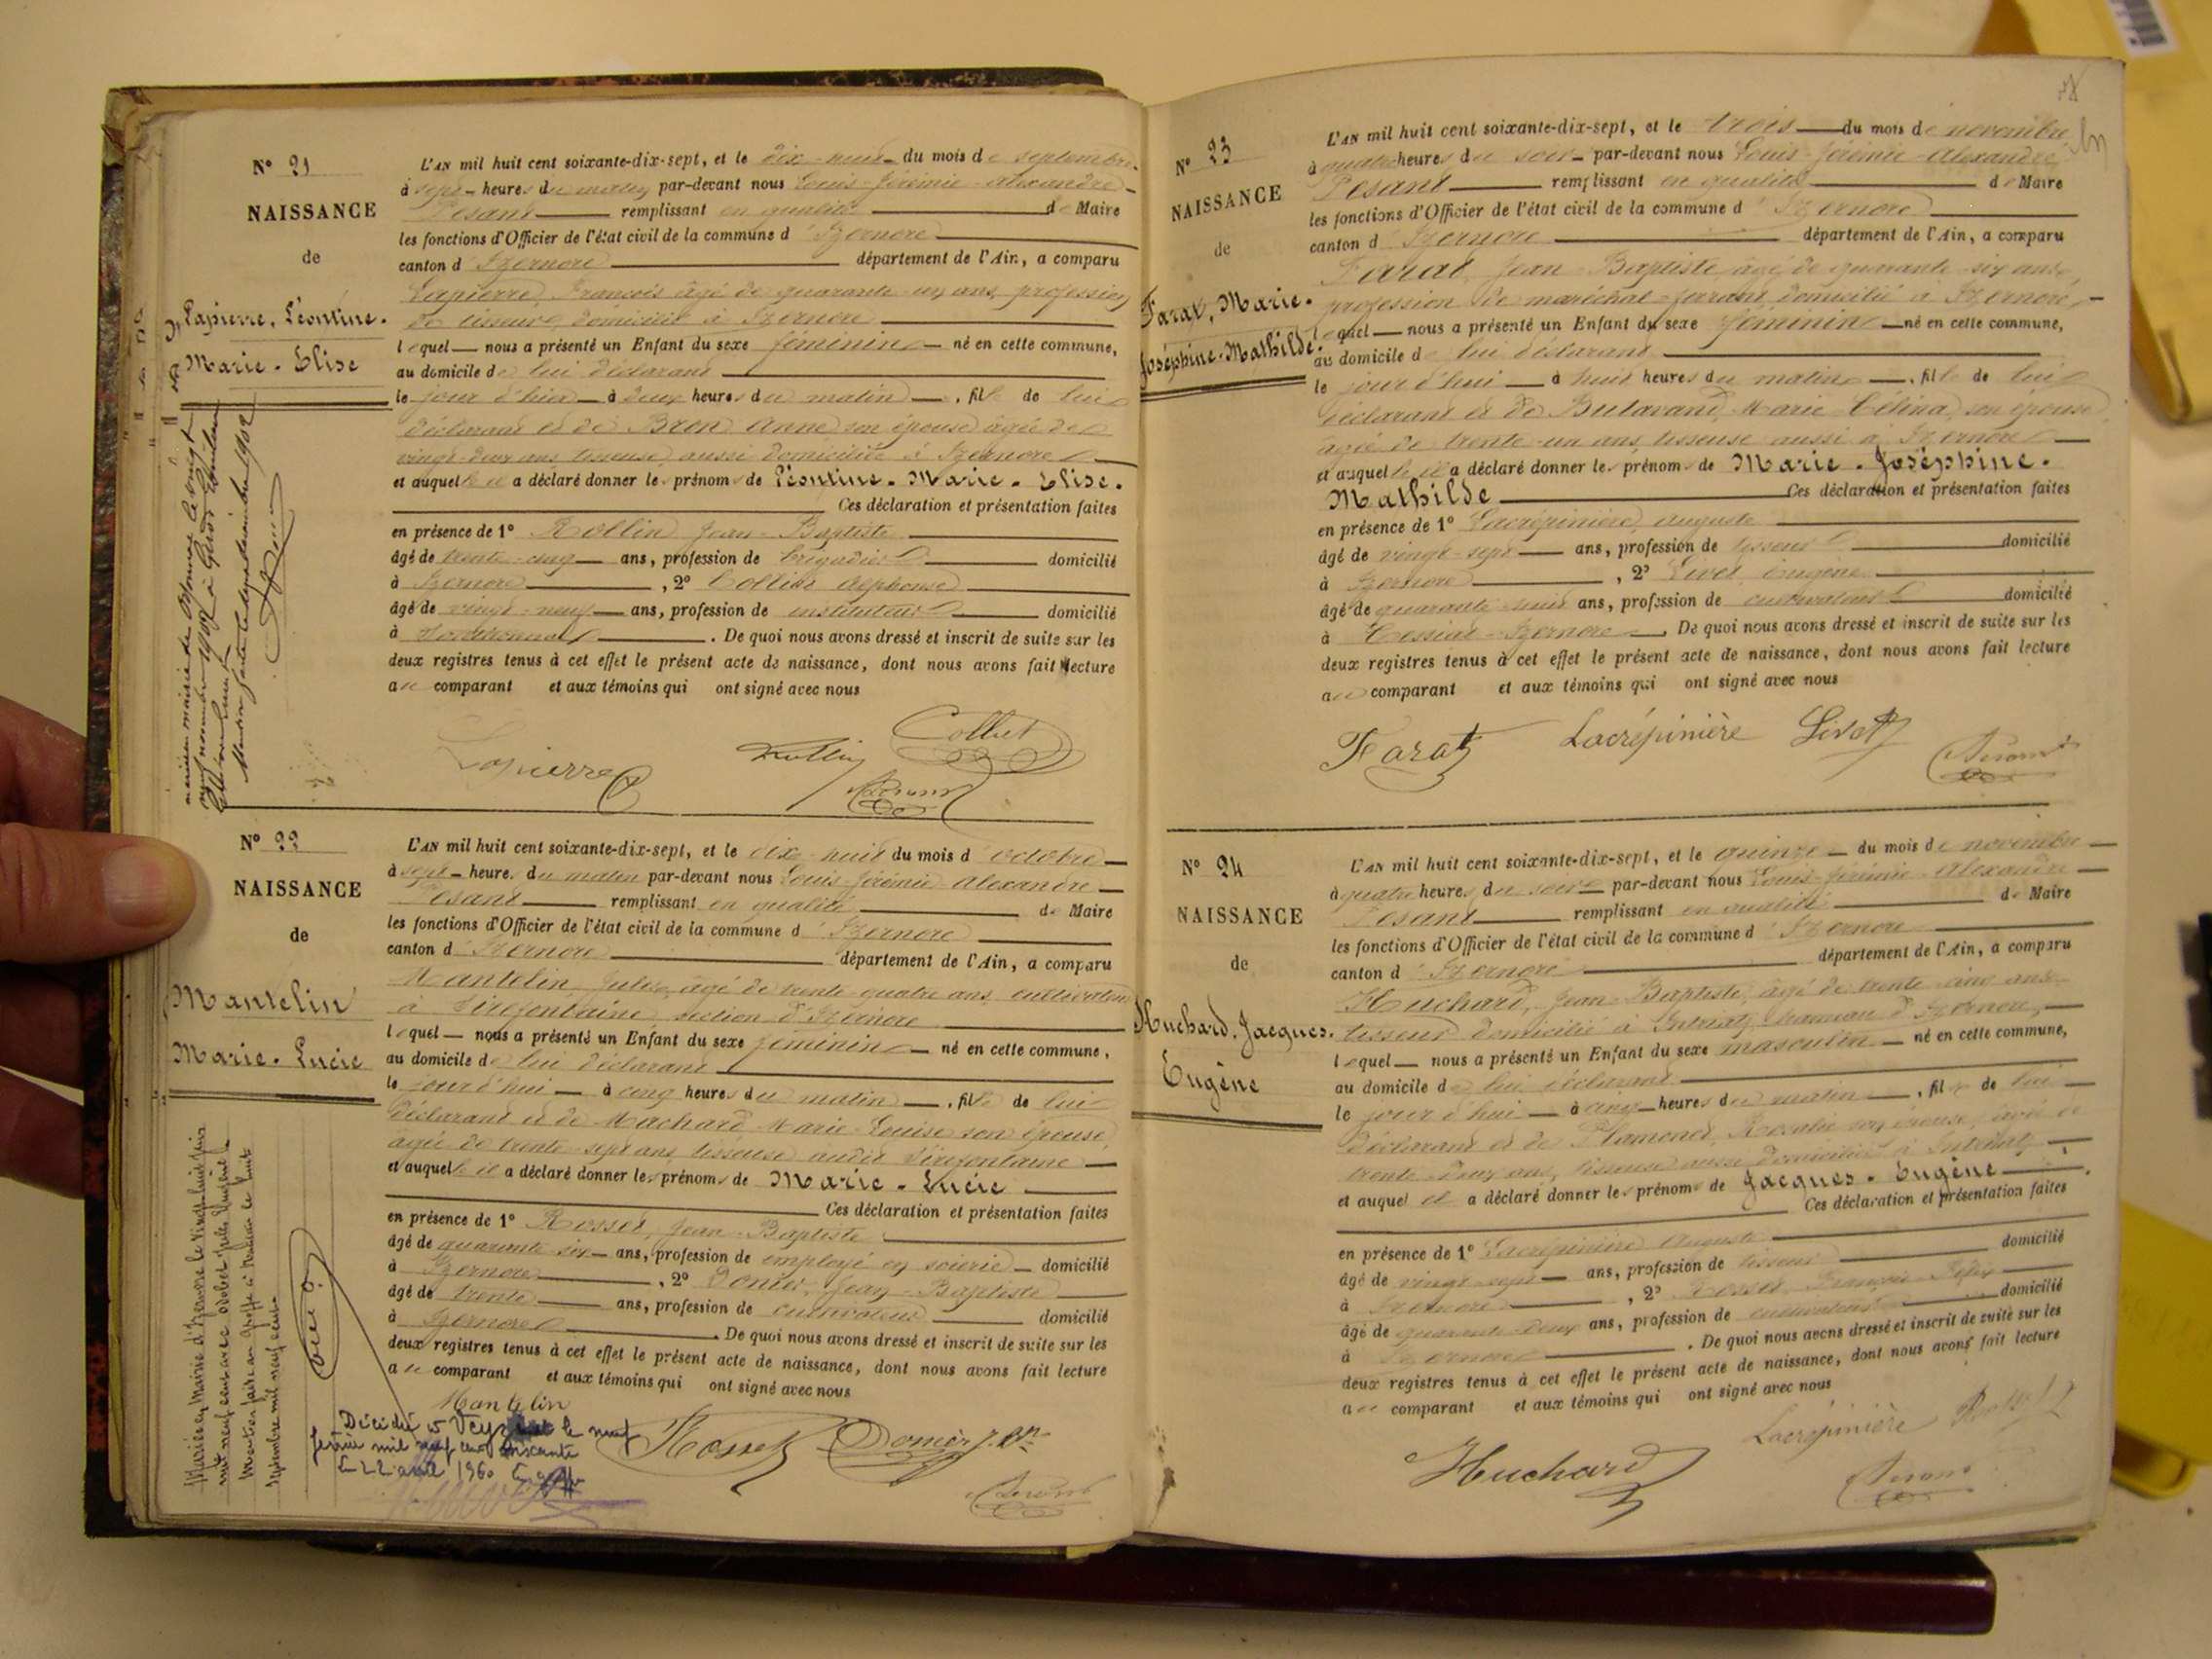 N° 21
NAISSANCE
de
Lapierre, Léontine.
Marie. Elise
L'AN mil huit cent soixante-dix-sept, et le dix-neuf du mois de septembre
à sept heures du matin par-devant nous Louis-Jérémie-Alexandre
Pesant remplissant en qualité de Maire
les fonctions d'Officier de l'état civil de la commune d'Izernore
canton d'Izernore département de l'Ain, a comparu
Lapierre, François âgé de quarante-un ans, profession
de tisseur, domicilié à Izernore
lequel nous a présenté un Enfant du sexe féminin né en cette commune,
au domicile de lui déclarant
le jour d'hier à deux heures du matin, fille de lui
déclarant et de Bron Anne son épouse âgée de
vingt-deux ans tisseuse aussi domiciliée à Izernore
et auquelle il a déclaré donner les prénoms de Léontine. Marie. Elise.
Ces déclaration et présentation faites
en présence de 1° Rollin Jean-Baptiste
âgé de trente-cinq ans, profession de brigadier domicilié
à Izernore, 2° Collet Alphonse
âgé de vingt-neuf ans, profession de instituteur domicilié
à . De quoi nous avons dressé et inscrit de suite sur les
deux registres tenus à cet effet le présent acte de naissance, dont nous avons fait lecture
au comparant et aux témoins qui ont signé avec nous
Lapierre Rollin Collet
Pesant
N° 22
NAISSANCE
de
Mantelin
Marie. Lucie
L'AN mil huit cent soixante-dix-sept, et le dix-huit du mois d'octobre
à sept heures du matin par-devant nous Louis-Jérémie-Alexandre
Pesant remplissant en qualité de Maire
les fonctions d'Officier de l'état civil de la commune d'Izernore
canton d'Izernore département de l'Ain, a comparu
Mantelin Jules, âgé de trente-quatre ans, cultivateur
à Tirefontaine section d'Izernore
lequel nous a présenté un Enfant du sexe féminin né en cette commune,
au domicile de lui déclarant
le jour d'hui à cinq heures du matin, fille de lui
déclarant et de Machard Marie-Louise son épouse,
âgée de trente-sept ans tisseuse audit Tirefontaine
et auquelle il a déclaré donner les prénoms de Marie. Lucie
Ces déclaration et présentation faites
en présence de 1° Rosset, Jean-Baptiste
âgé de quarante-six ans, profession de employé en soierie domicilié
à Izernore, 2° Donier, Jean-Baptiste
âgé de trente ans, profession de cultivateur domicilié
à Izernore. De quoi nous avons dressé et inscrit de suite sur les
deux registres tenus à cet effet le présent acte de naissance, dont nous avons fait lecture
au comparant et aux témoins qui ont signé avec nous
Mantelin
Décédée à le neuf
février mil neuf cent soixante
Le 22 avril 1960
Rosset Donier J. Bte
Pesant
N° 23
NAISSANCE
de
Farat, Marie.
Joséphine. Mathilde.
L'AN mil huit cent soixante-dix-sept, et le trois du mois de novembre
à quatre heures du soir par-devant nous Louis-Jérémie-Alexandre
Pesant remplissant en qualité de Maire
les fonctions d'Officier de l'état civil de la commune d'Izernore
canton d'Izernore département de l'Ain, a comparu
Farat, Jean-Baptiste âgé de quarante-six ans,
profession de maréchal-ferrant, domicilié à Izernore,
lequel nous a présenté un Enfant du sexe féminin né en cette commune,
au domicile de lui déclarant
le jour d'hui à huit heures du matin, fille de lui
déclarant et de Butavand, Marie-Célina, son épouse,
âgée de trente-un ans tisseuse aussi à Izernore
et auquelle il a déclaré donner les prénoms de Marie. Joséphine.
Mathilde Ces déclaration et présentation faites
en présence de 1° Lacrépinière, Auguste
âgé de vingt-sept ans, profession de tisseur domicilié
à Izernore, 2° Livet, Eugène
âgé de quarante-huit ans, profession de cultivateur domicilié
à Tessiat-Izernore. De quoi nous avons dressé et inscrit de suite sur les
deux registres tenus à cet effet le présent acte de naissance, dont nous avons fait lecture
au comparant et aux témoins qui ont signé avec nous
Farat Lacrépinière Livet
Pesant
N° 24
NAISSANCE
de
Huchard, Jacques.
Eugène
L'AN mil huit cent soixante-dix-sept, et le quinze du mois de novembre
à quatre heures du soir par-devant nous Louis-Jérémie-Alexandre
Pesant remplissant en qualité de Maire
les fonctions d'Officier de l'état civil de la commune d'Izernore
canton d'Izernore département de l'Ain, a comparu
Huchard, Jean-Baptiste, âgé de trente-cinq ans
tisseur domicilié à Intriat, hameau d'Izernore,
lequel nous a présenté un Enfant du sexe masculin né en cette commune,
au domicile de lui déclarant
le jour d'hui à cinq heures du matin, fils de lui
déclarant et de Rosalie son épouse, âgée de
trente-deux ans, tisseuse aussi domiciliée à Intriat,
et auquel il a déclaré donner les prénoms de Jacques. Eugène
Ces déclaration et présentation faites
en présence de 1° Lacrépinière Auguste
âgé de vingt-sept ans, profession de tisseur domicilié
à Izernore, 2° Rosset François-Félix
âgé de quarante-deux ans, profession de cultivateur domicilié
à Izernore. De quoi nous avons dressé et inscrit de suite sur les
deux registres tenus à cet effet le présent acte de naissance, dont nous avons fait lecture
au comparant et aux témoins qui ont signé avec nous
Huchard Lacrépinière Rosset
Pesant